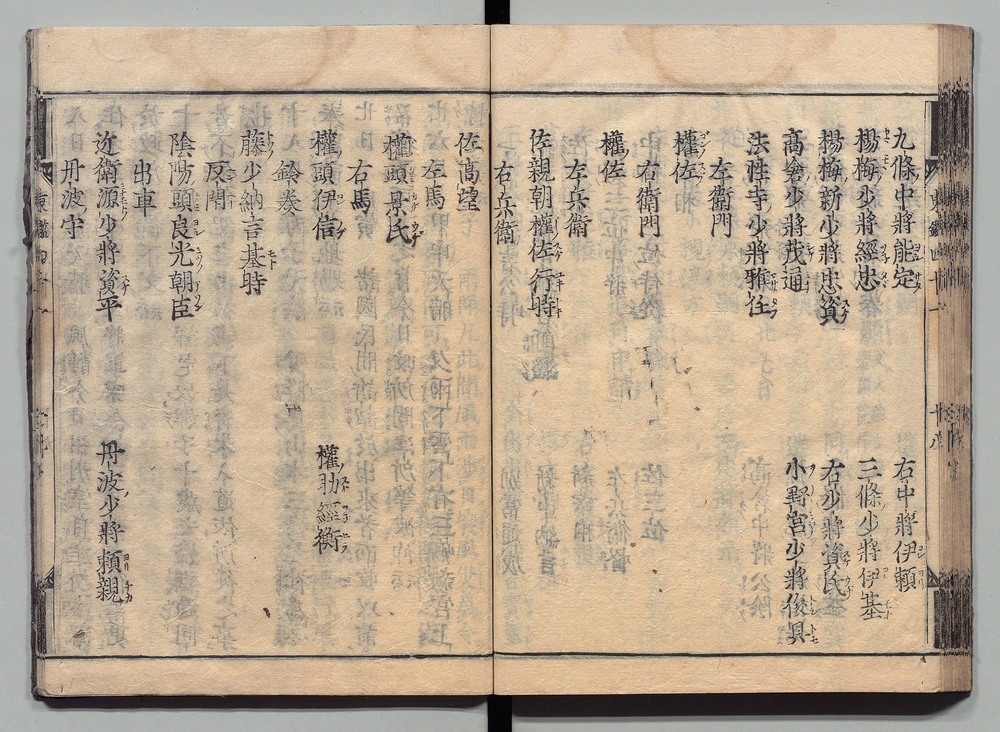 九條中將能定
右中將伊頼
楊梅少將經忠
三條少將伊基
楊梅新少將忠資
右少將資氏
高倉少將茂通
小野宮少將俊具
法性寺少將雅任
左衛門
權佐
右衛門
權佐
左兵衛
佐親朝權佐行時
右兵衛
佐高望
左馬
權頭景氏
右馬
權頭伊信
權助經衡
鈴奏
藤少納言基時
反閇
陰陽頭良光朝臣
出車
近衛源少將資平
丹波少將頼親
丹波守